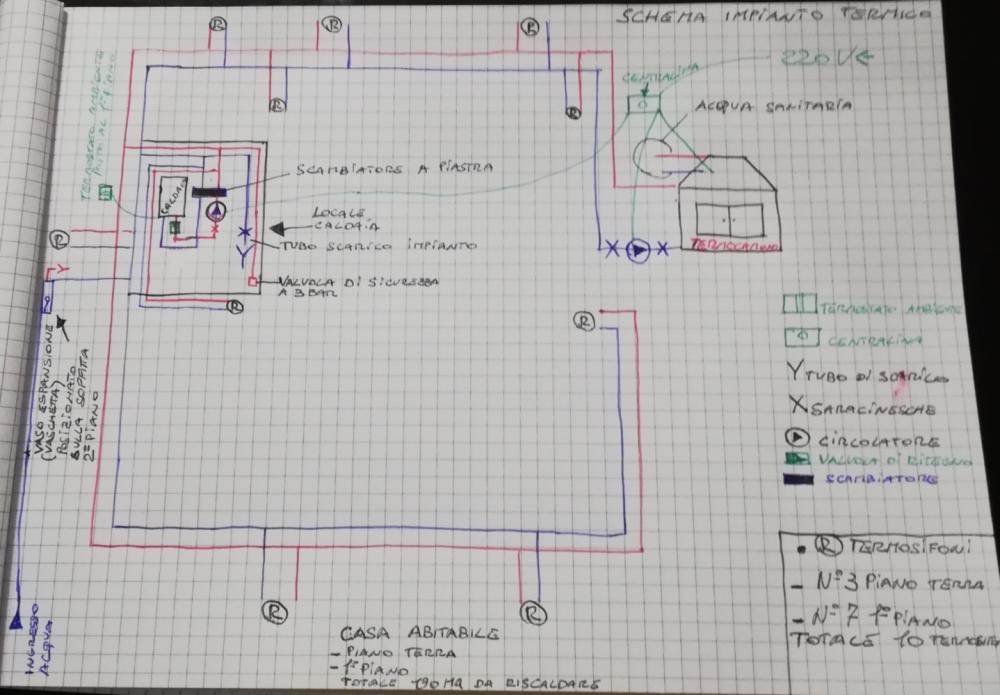 SCHEMA IMPIANTO TERMICO
R
R
R
220 V
CENTRALINA
ACQUA SANITARIA
TERMOSTATO AMBIENTE
POSTO AL 1° PIANO
R
R
CALDAIA
SCAMBIATORE A PIASTRA
LOCALE
CALDAIA
TUBO SCARICO IMPIANTO
VALVOLA DI SICUREZZA
A 3 BAR
R
R
R
TERMOCAMINO
VASO ESPANSIONE
(VASCHETTA)
POSIZIONATO
SULLA SOFFITTA
2° PIANO
TERMOSTATO AMBIENTE
CENTRALINA
Y TUBO DI SCARICO
X SARACINESCHE
CIRCOLATORE
VALVOLA DI RITEGNO
SCAMBIATORE
R TERMOSIFONI
- N° 3 PIANO TERRA
- N° 7 1° PIANO
TOTALE 10 TERMOSIFONI
R
R
INGRESSO
ACQUA
CASA ABITABILE
- PIANO TERRA
- 1° PIANO
TOTALE 190 MQ DA RISCALDARE